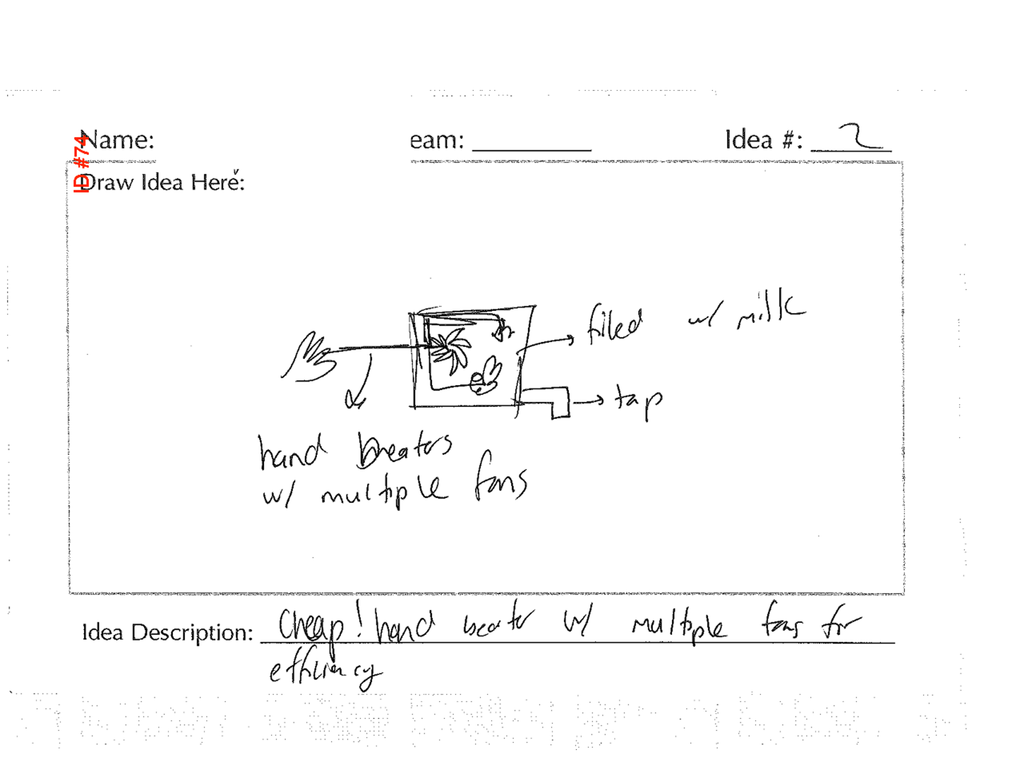 Name: eam: Idea #: 2
ID #74
Draw Idea Here:
filled w/ milk
tap
hand beaters
w/ multiple fans
Idea Description: Cheap! hand beater w/ multiple fans for
efficiency